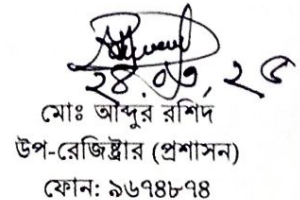 ২৪.০৩.২৫
মোঃ আব্দুর রশিদ
উপ-রেজিষ্ট্রার (প্রশাসন)
ফোন: ৯৬৭৪৮৭৪